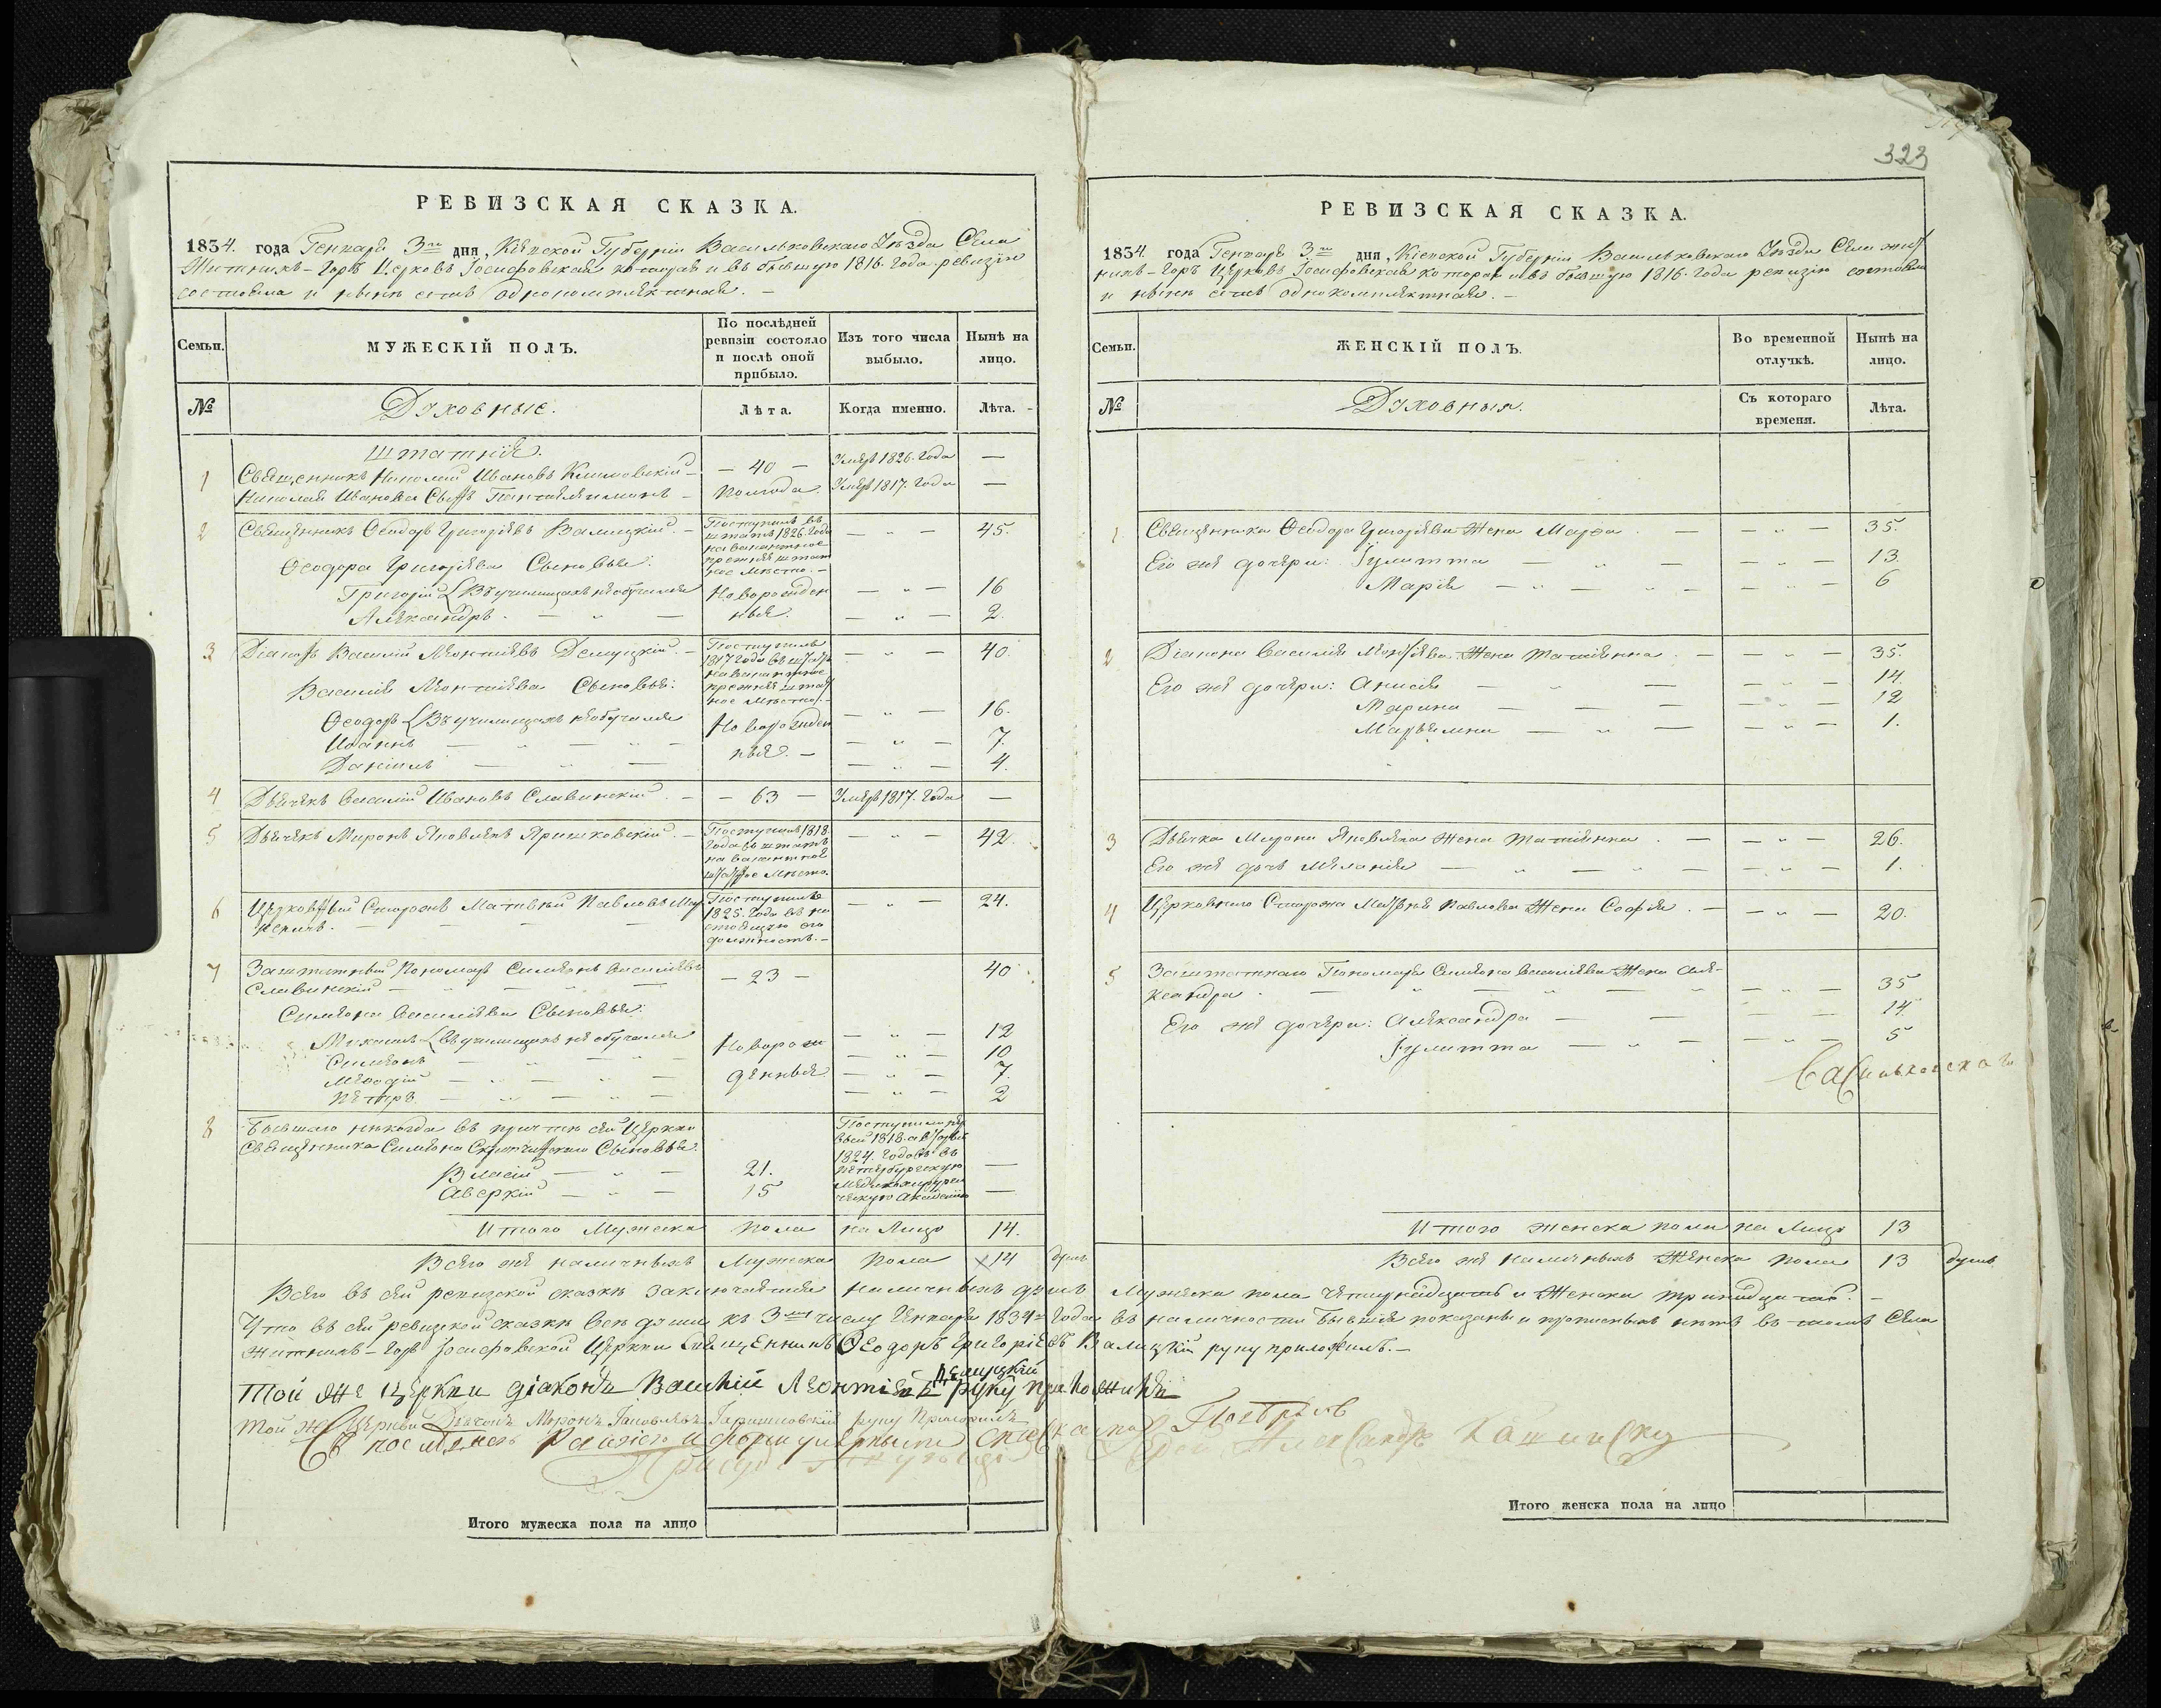 323
РЕВИЗСКАЯ СКАЗКА.
1834. года Генваря 3го дня, Кіевской Губерніи Васильковскаго Уѣзда Села
Житникъ-Горъ Церковъ Іосифовская которая и въ бывшую 1816. года ревизію
состояла и нынѣ есть однокомплектная. —
Семьи.
МУЖЕСКІЙ ПОЛЪ.
По послѣдней ревизіи состояло и послѣ оной прибыло.
Изъ того числа выбыло.
Нынѣ на лицо.
№
Духовные.
Лѣта.
Когда именно.
Лѣта.
Штатніе.
1 Священникъ Николай Ивановъ Климовскій — 40 — Умеръ 1826. года —
Николая Иванова Сынъ Пантелеимонъ — полгода. Умеръ 1817. года —
2 Священникъ Ѳеодоръ Григоріевъ Валицкій. — Поступилъ въ штатъ 1826. года на вакантное прежнее штатное мѣсто. — — „ — 45.
Ѳеодора Григоріева Сыновья:
Григорій (Въ училищахъ необучался Новорожден — „ — 16
Александръ. — „ — ные. — „ — 2.
3 Діаконъ Василій Леонтіевъ Демуцкій. — Поступилъ 1817 года въ штатъ на вакантное прежнее штатное мѣсто. — — „ — 40.
Василія Леонтіева Сыновья:
Ѳеодоръ (Въ училищахъ необучался Новорожден — „ — 16.
Иоаннъ — „ — „ — ные. — — „ — 7.
Даніилъ — „ — — „ — 4.
4 Дьячекъ Василій Ивановъ Славинскій. — — 63 — Умеръ 1817. года —
5 Дьячекъ Миронъ Яковлевъ Яришковскій. — Поступилъ 1818. года въ штатъ на вакантное штатное мѣсто. — „ — 42.
6 Церковный Сторожъ Матвѣй Павловъ Поступилъ 1825. года въ настоящую его должность. — — „ — 24.
7 Заштатный Пономарь Симеонъ Василіевъ — 23 — 40
Славинскій — „ — „ —
Симеона Василіева Сыновья:
Михаилъ (Въ училищахъ не обучался Новорож — „ — 12
Симеонъ — „ — „ — денные — „ — 10
Меѳодій — „ — „ — — „ — 7
Петръ. — „ — „ — — „ — 2
8 Бывшаго нѣкогда въ причтѣ сей Церкви Поступили первый 1818. а вторый 1824. годовъ въ Петербургскую Медикохирургическую Академію
Священника Симеона Сыновья:
Власій — „ — 21. —
Аверкій — „ — 15 —
Итого Мужеска пола на Лицо 14.
Всего же наличныхъ Мужеска пола 14 душъ
РЕВИЗСКАЯ СКАЗКА.
1834. года Генваря 3го дня, Кіевской Губерніи Васильковскаго Уѣзда Села Жит
никъ-Горъ Церковъ Іосифовская которая и въ бывшую 1816. года ревизію состояла
и нынѣ есть однокомплектная. —
Семьи.
ЖЕНСКІЙ ПОЛЪ.
Во временной отлучкѣ.
Нынѣ на лицо.
№
Духовныя.
Съ котораго времени.
Лѣта.
1. Священника Ѳеодора Григоріева Жена Марѳа. — — „ — 35.
Его же дочери: Іулитта — „ — — „ — 13.
Марія — „ — „ — — „ — 6
2 Діакона Василія Леонтіева Жена Татіянна. — — „ — 35.
Его же дочери: Анисія — „ — — „ — 14.
Марина — — — — „ — 12
Маріямна — „ — — „ — 1.
3 Дьячка Мирона Яковлева Жена Татіянна. — — „ — 26.
Его же дочь Меланія — „ — „ — — „ — 1.
4 Церковнаго Сторожа Матѳея Павлова Жена Софія. — — „ — 20.
5 Заштатнаго Пономаря Симеона Василіева Жена Але-
ксандра. — „ — „ — „ — — „ — 35
Его же дочери: Александра — — — „ — 14.
Іулитта — „ — — „ — 5
Итого женска пола на Лицо 13
Всего же наличныхъ Женска пола 13 душъ
Всего въ сей ревизской сказкѣ заключается наличныхъ душъ Мужеска пола четырнадцать и Женска тринадцать. —
Что въ сей ревизской сказкѣ всѣ души къ 3му числу Генваря 1834го года въ наличности бывшія показаны и прописныхъ нѣтъ въ томъ Села
Житникъ-Горъ Іосифовской Церкви Священникъ Ѳеодоръ Григоріевъ Валицкій руку приложилъ. —
Той же Церкви діаконъ Василій Леонтіевъ Демуцкій руку приложилъ
Той же Церкви Дьячокъ Миронъ Іаковлевъ Яришковскій руку Приложилъ
Итого мужеска пола на лицо
Итого женска пола на лицо